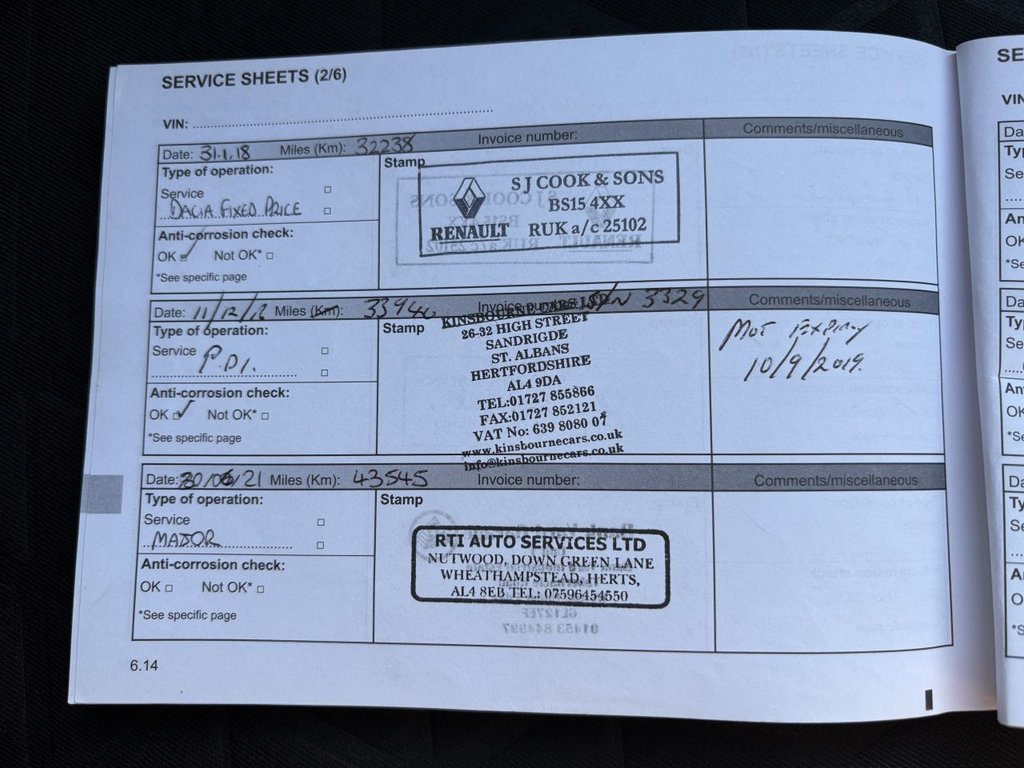 SERVICE SHEETS (2/6)
VIN:
Date: 31.1.18 Miles (Km): 32238 Invoice number: Comments/miscellaneous
Type of operation:
Service
DACIA FIXED PRICE
Anti-corrosion check:
OK Not OK*
*See specific page
Stamp
S J COOK & SONS
BS15 4XX
RENAULT RUK a/c 25102
Date: 11/12/18 Miles (Km): Invoice number: 3329 Comments/miscellaneous
Type of operation:
Service
P.D.I.
Anti-corrosion check:
OK Not OK*
*See specific page
Stamp
KINSBOURNE CARS LTD
26-32 HIGH STREET
SANDRIGDE
ST. ALBANS
HERTFORDSHIRE
AL4 9DA
TEL:01727 855866
FAX:01727 852121
VAT No: 639 8080 07
www.kinsbournecars.co.uk
info@kinsbournecars.co.uk
MOT Expiry
10/9/2019.
Date: 30/06/21 Miles (Km): 43545 Invoice number: Comments/miscellaneous
Type of operation:
Service
MAJOR
Anti-corrosion check:
OK Not OK*
*See specific page
Stamp
RTI AUTO SERVICES LTD
NUTWOOD, DOWN GREEN LANE
WHEATHAMPSTEAD, HERTS,
AL4 8EB TEL: 07596454550
6.14